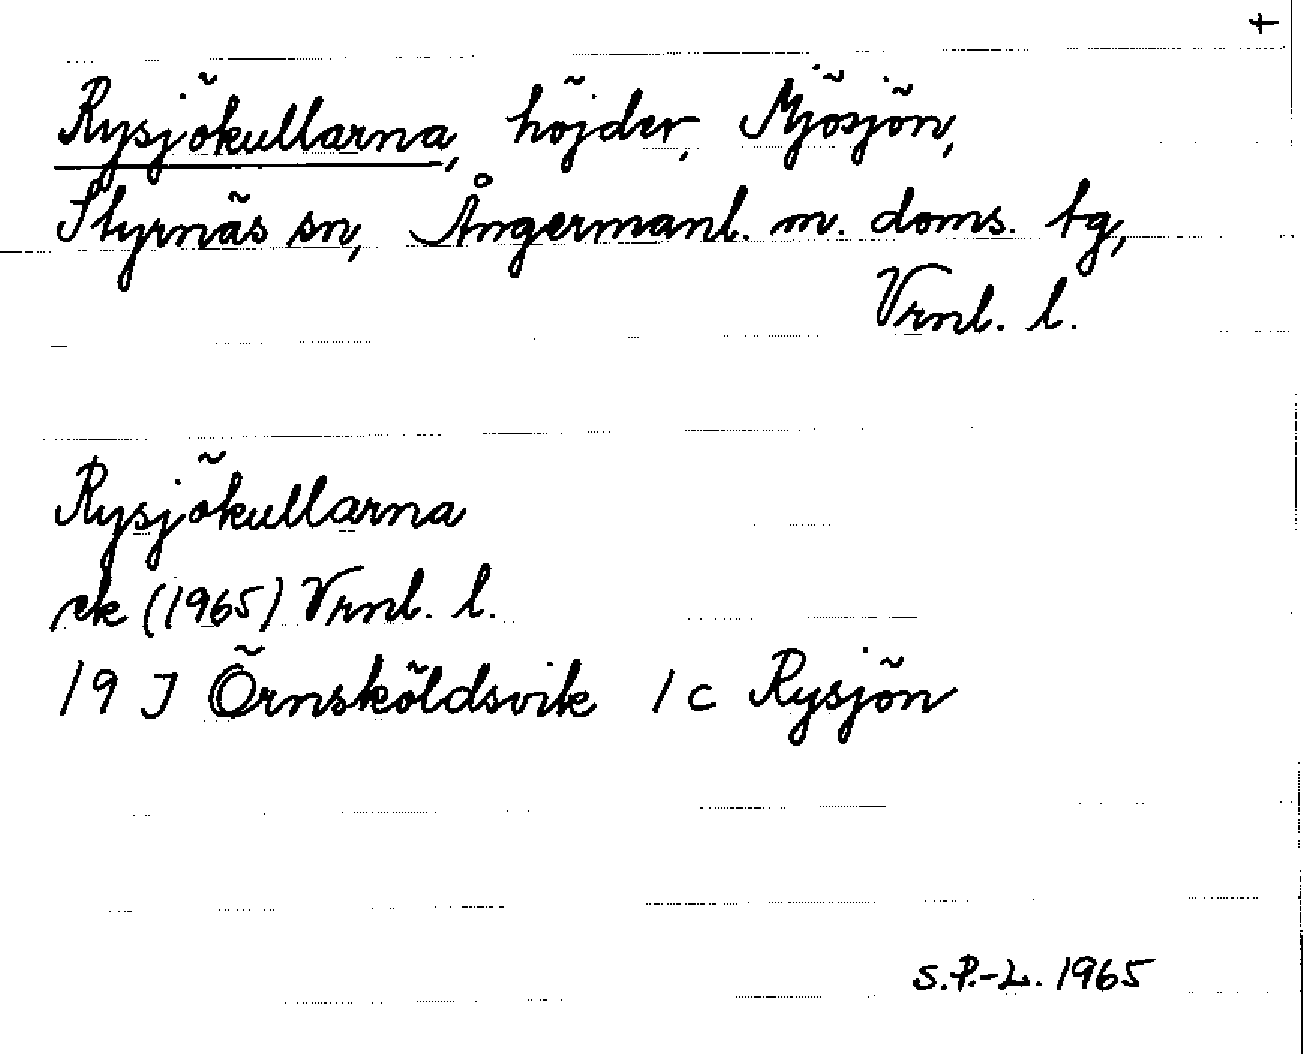 †
Rysjökullarna, höjder, Mjösjön,
Styrnäs sn, Ångermanl. m. doms. tg,
Vrnl. l.
Rysjökullarna
ek (1965) Vrnl. l.
19 J Örnsköldsvik 1 c Rysjön
S.P.-L. 1965